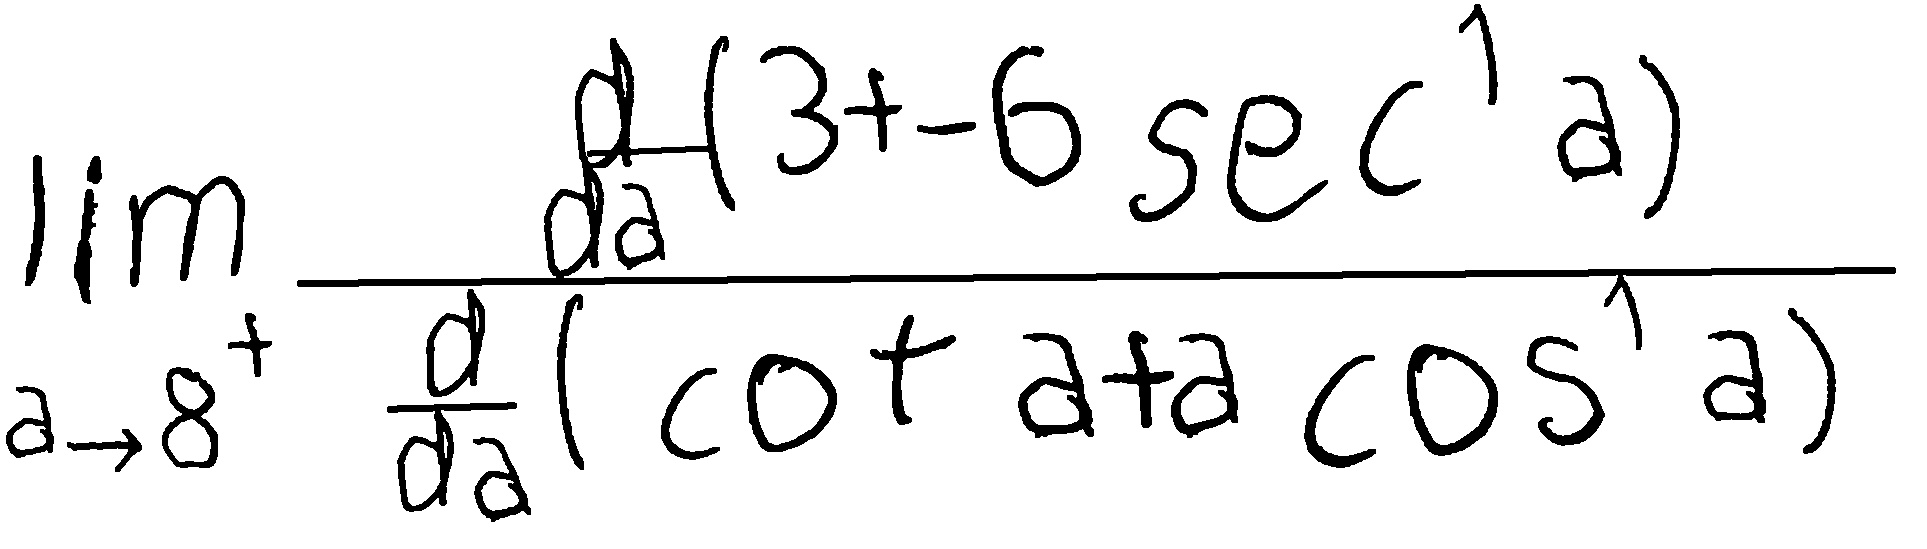 \lim_{a \to 8^{+}} \frac{\frac{d}{da}(3+-6\sec^{1}a)}{\frac{d}{da}(\cot a+a\cos^{1}a)}